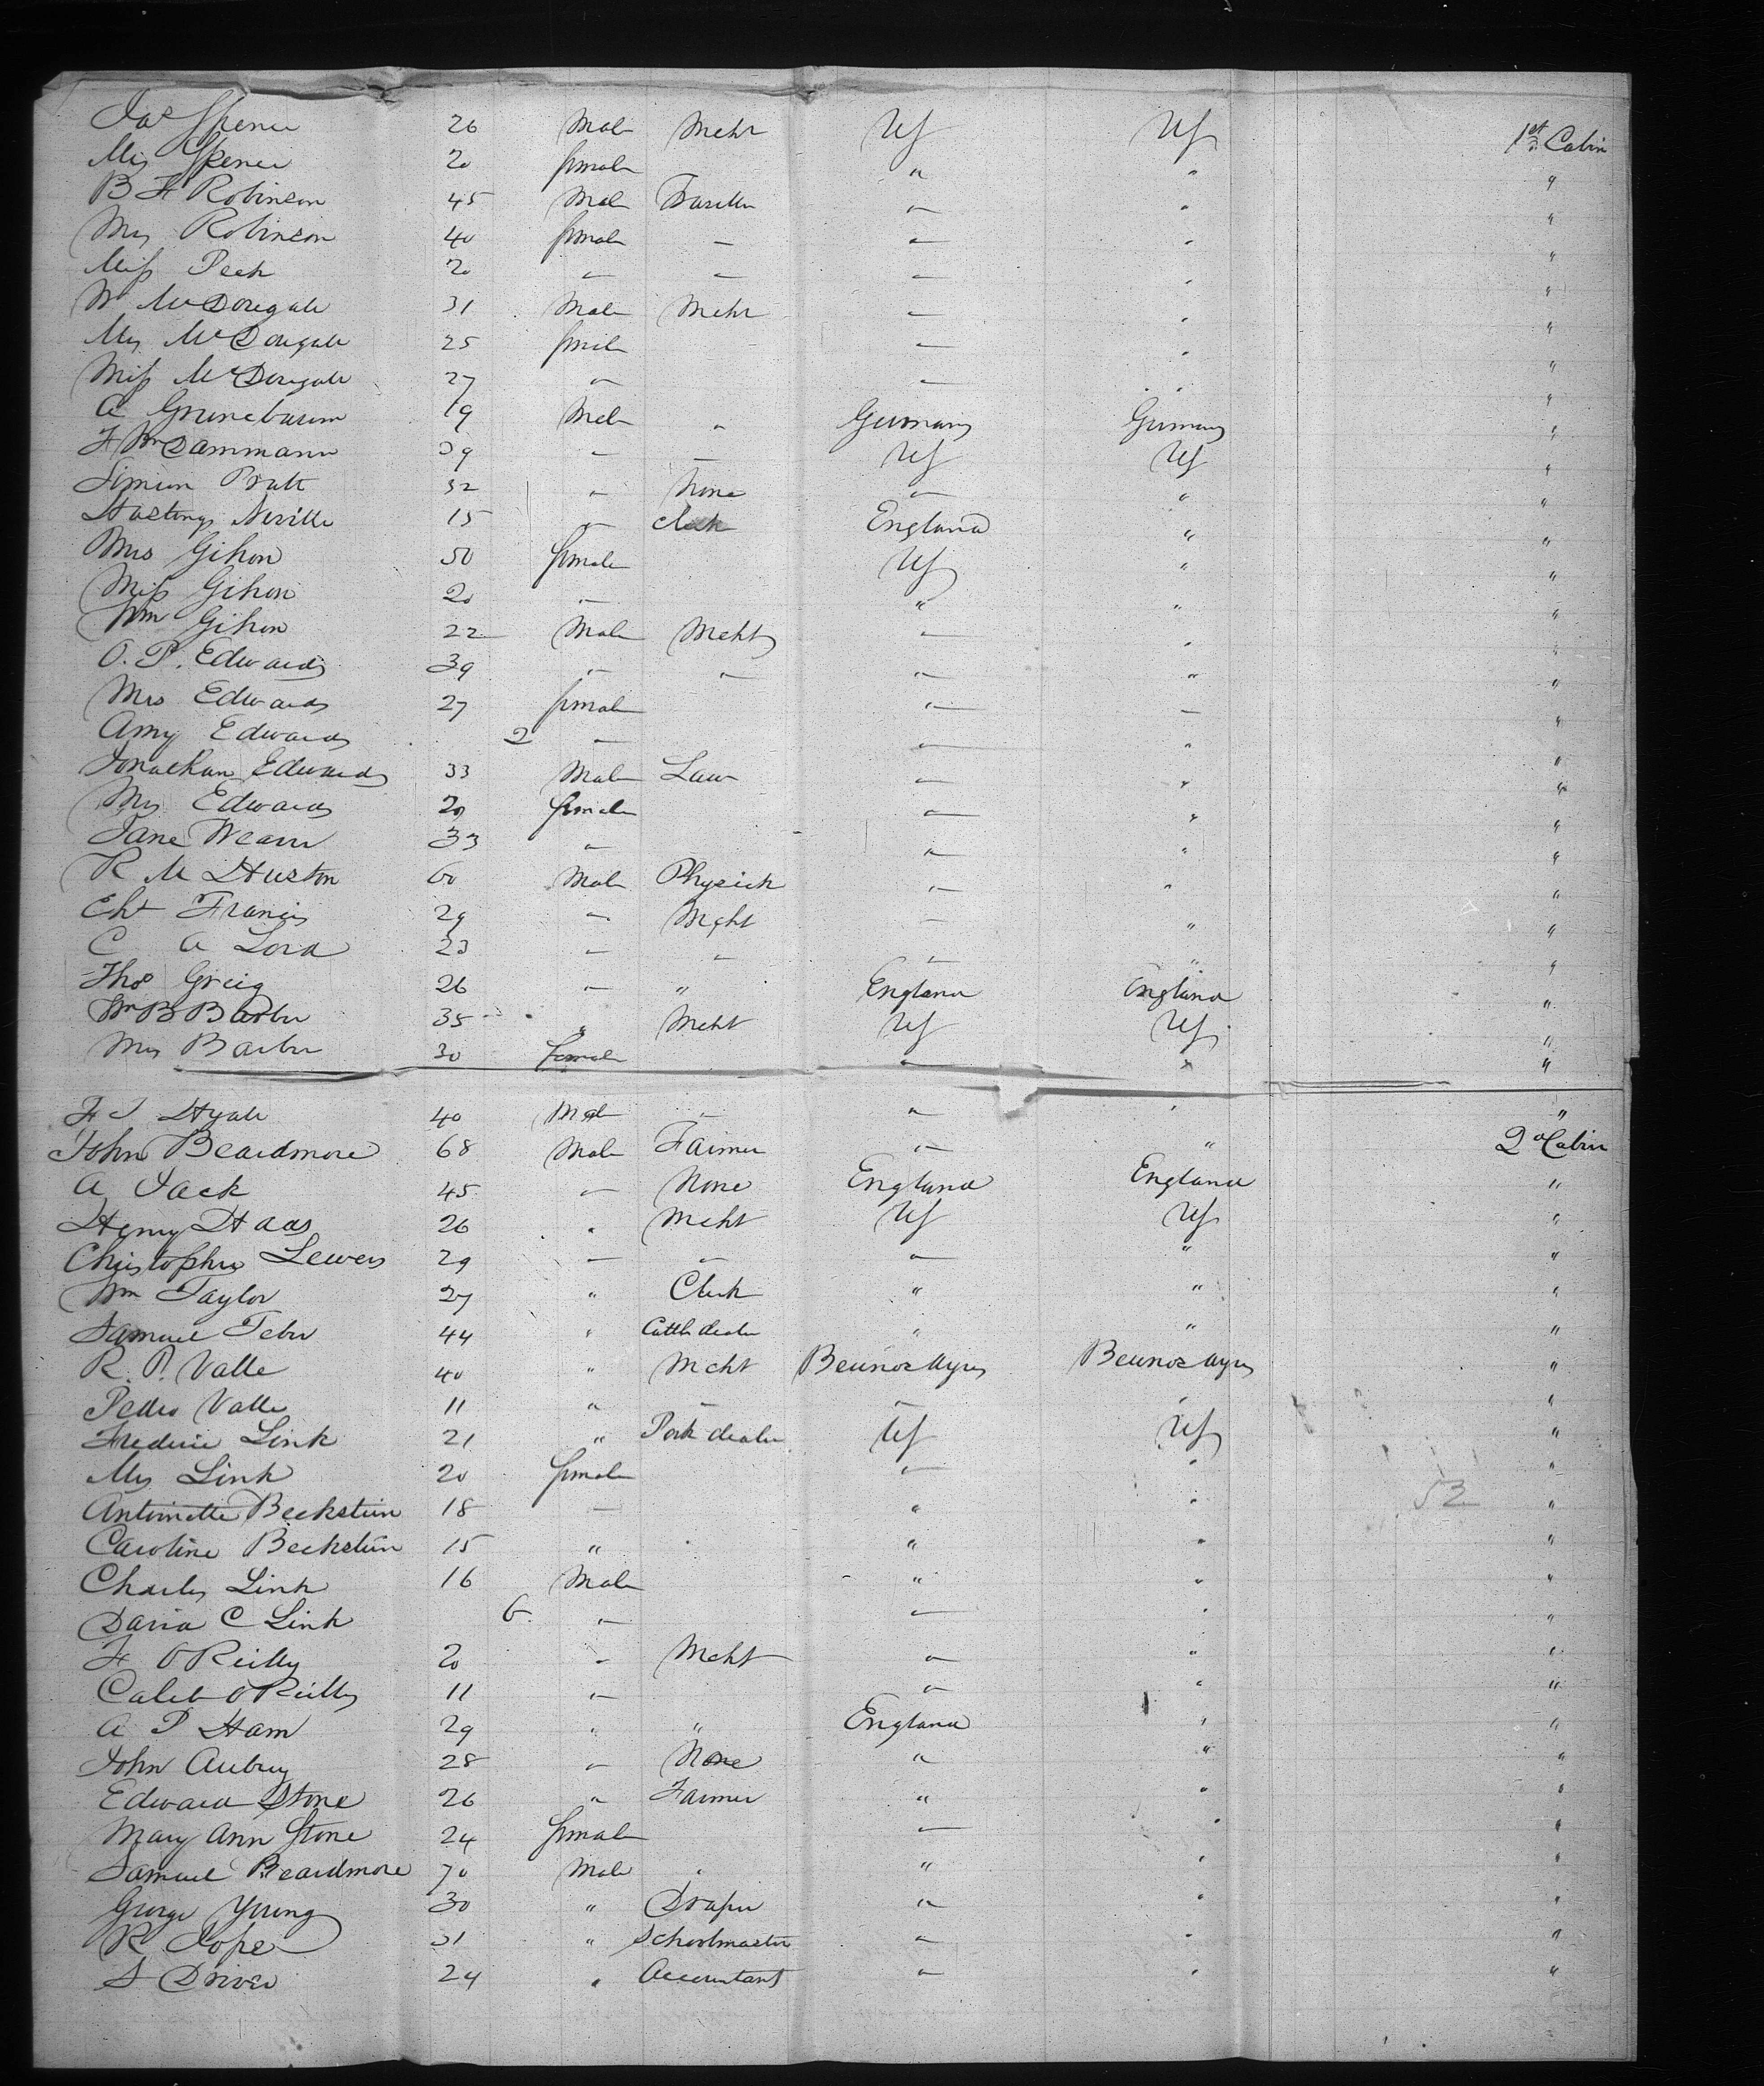 Jas Spence 26 Male Mcht US US 1st Cabin
Mrs Spence 20 female " " "
B F Robinson 45 Male " " "
Mrs Robinson 40 female " " " "
Miss Peck 20 " " " " "
W McDougale 31 Male Mcht " " "
Mrs McDougale 25 female " " "
Miss McDougale 27 " " " "
A Grunebaum 19 Male " Germany Germany "
F Wm Dammann 39 " " US US "
Simeon Pratt 32 " None " " "
Hastings Neville 15 " Clerk England " "
Mrs Gihon 50 female US " "
Miss Gihon 20 " " " "
Wm Gihon 22 Male Mcht " " "
O. P. Edwards 39 " " " " "
Mrs Edwards 27 female " " "
Amy Edwards 2 " " " "
Jonathan Edwards 33 Male Law " " "
Mrs Edwards female " " "
Jane Weaver 33 " " " "
R M Huston 60 Male Physick " " "
Francis 29 " Mcht " " "
C A Lord 23 " " " " "
Thos Greig 26 " " England England "
Wm B Barber 35 " Mcht US US "
Mrs Barber 30 female " " "
F S Hyate 40 Male " " " "
John Beardmore 68 Male Farmer " " 2d Cabin
A Jack 45 " None England England "
Henry Haas 26 " Mcht US US "
Christopher Lewers 29 " " " " "
Wm Taylor 27 " Clerk " " "
Samuel Teber 44 " Cattle dealer " " "
R. P. Valle 40 " Mcht Beunos Ayres Beunos Ayres "
Pedro Valle 11 " " " " "
Frederic Link 21 " Pork dealer US US "
Mrs Link 20 female " " "
Antoinette Beckstein 18 " " " 53 "
Caroline Beckstein 15 " " " "
Charles Link 16 Male " " "
David C Link 6 " " " "
F O Reilly 20 " Mcht " " "
Caleb O Reilly 11 " " " "
A P Ham 29 " " England " "
John Aubrey 28 " None " " "
Edward Stone 26 " Farmer " " "
Mary Ann Stone 24 female " " "
Samuel Beardmore 70 Male " " " "
George Young 30 " Draper " " "
R Jope 31 " Schoolmaster " " "
S Driver 24 " Accountant " " "